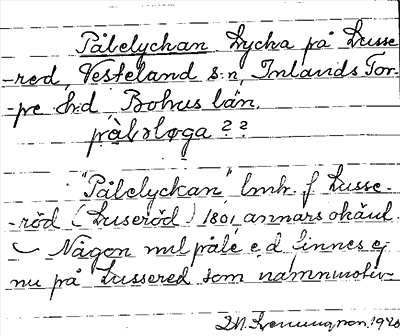 Pålelyckan Lycka på Lusse-
-red, Vesteland s:n, Inlands Tor-
-pe h:d, Bohus län.
pàləløga ? ?
"Pålelyckan" lmh. f Lusse-
-röd (Luseröd) 1801, annars okänd.
Någon mil påle e.d. finnes ej
nu på Lussered som namnmotiv-
1920